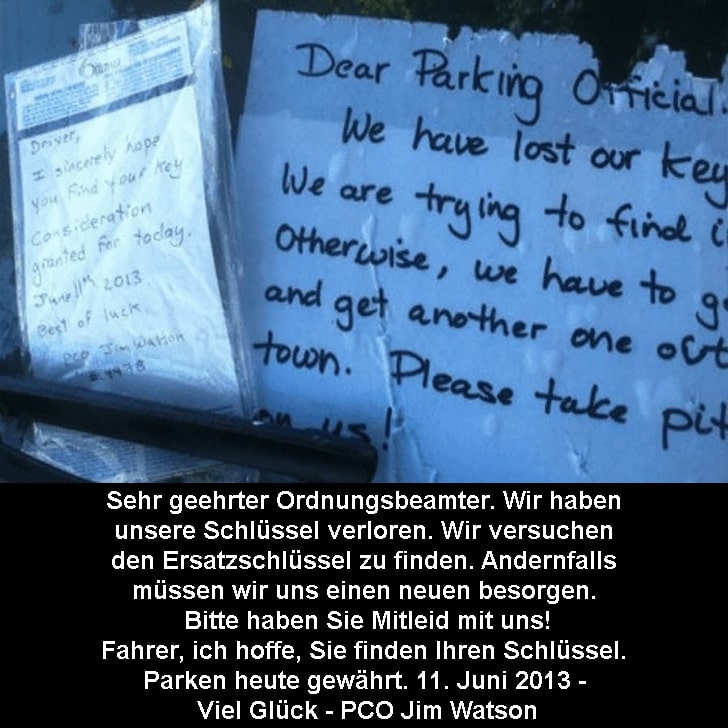 Driver,
I sincerely hope
you find your key
Consideration
granted for today.
June 11th 2013
Best of luck.
PCO Jim Watson
Dear Parking Official
We have lost our key
We are trying to find
Otherwise, we have to
and get another one out
town. Please take pit
on us!
Sehr geehrter Ordnungsbeamter. Wir haben
unsere Schlüssel verloren. Wir versuchen
den Ersatzschlüssel zu finden. Andernfalls
müssen wir uns einen neuen besorgen.
Bitte haben Sie Mitleid mit uns!
Fahrer, ich hoffe, Sie finden Ihren Schlüssel.
Parken heute gewährt. 11. Juni 2013 -
Viel Glück - PCO Jim Watson